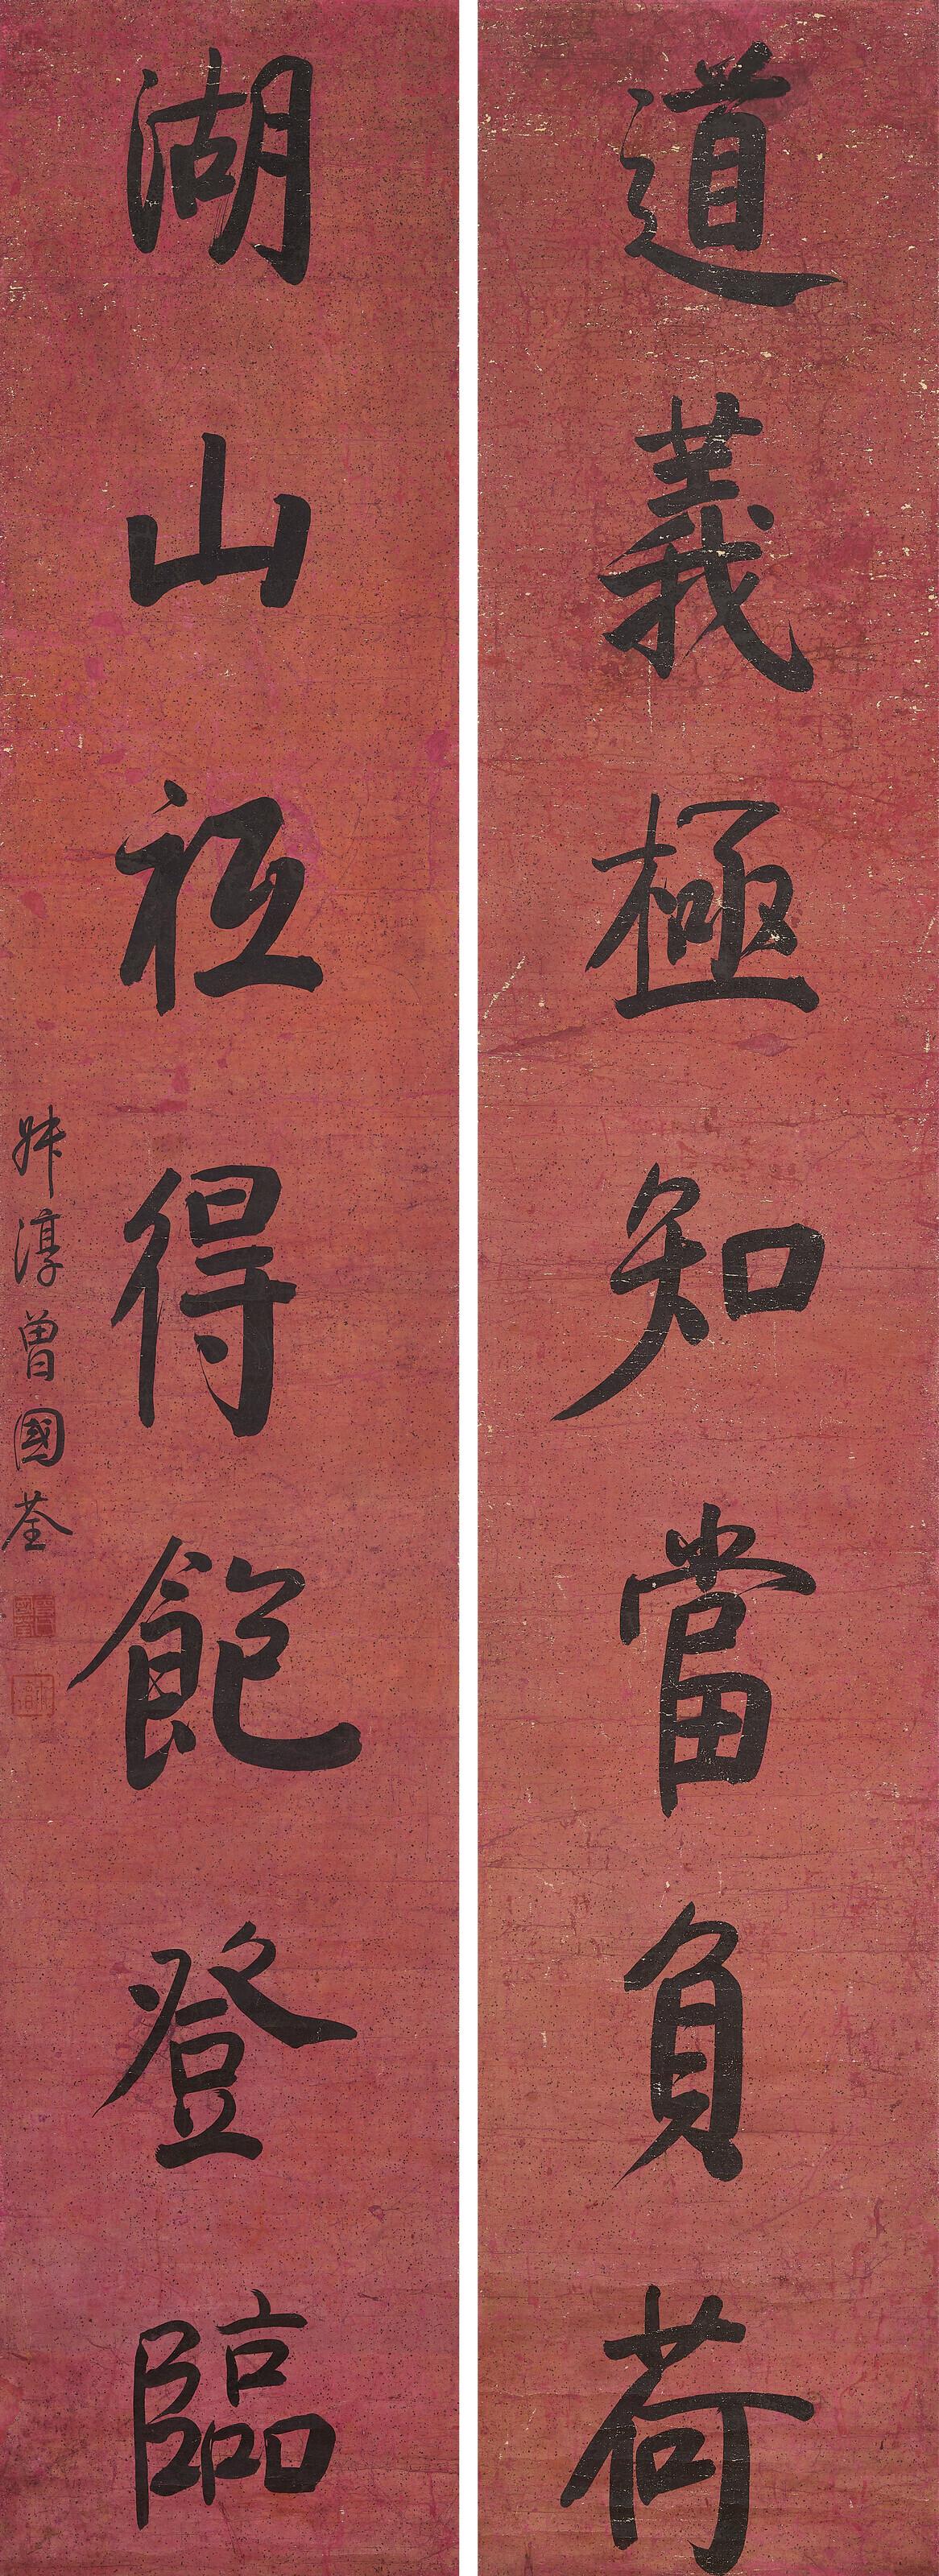 道義極知當負荷
湖山祗得飽登臨
叔淳曾國荃